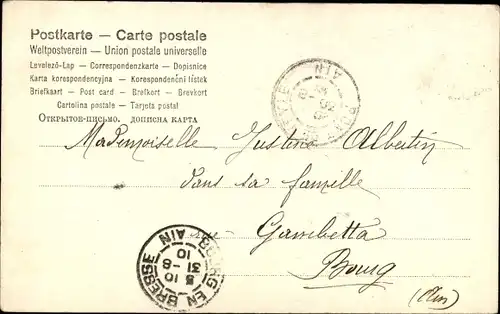 Postkarte — Carte postale
Weltpostverein — Union postale universelle
Levelező-Lap — Correspondenzkarte — Dopisnice
Karta korespondencyjna — Korespondenční lístek
Briefkaart — Post card — Brefkort — Brevkort
Cartolina postale — Tarjeta postal
Открытое-письмо. Дописна карта
AIN
Mademoiselle Justine Albertin
dans sa famille
rue Gambetta
Bourg
(Ain)
BOURG EN BRESSE
AIN
10
31 - 8
5 10